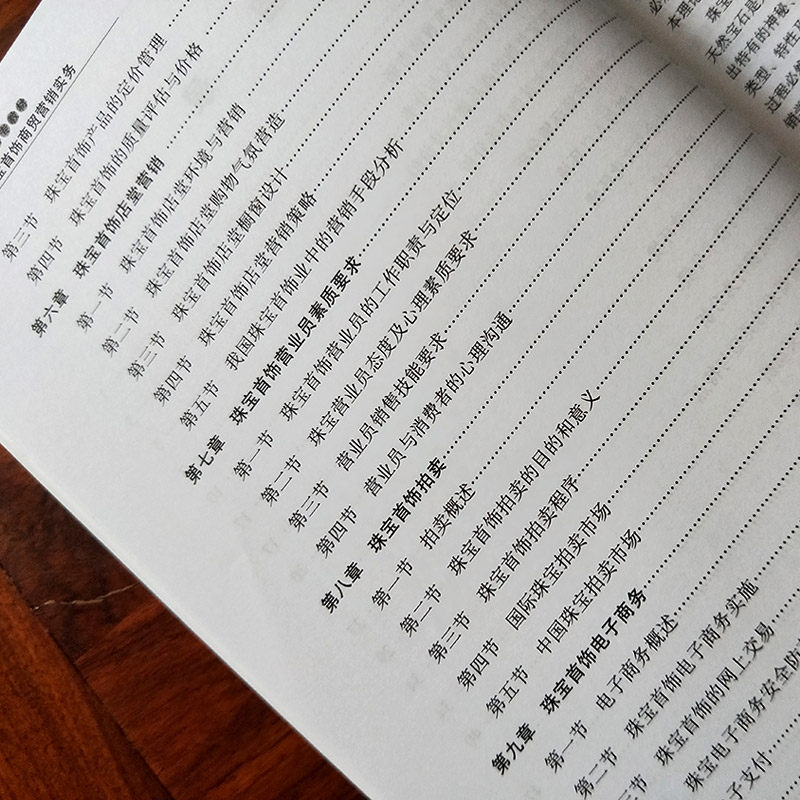 首饰商贸营销实务
第三节 珠宝首饰产品的定价管理
第四节 珠宝首饰的质量评估与价格
第六章 珠宝首饰店堂营销
第一节 珠宝首饰店堂环境与营销
第二节 珠宝首饰店堂购物气氛营造
第三节 珠宝首饰店堂橱窗设计
第四节 珠宝首饰店堂营销策略
第五节 我国珠宝首饰业中的营销手段分析
第七章 珠宝首饰营业员素质要求
第一节 珠宝首饰营业员的工作职责与定位
第二节 珠宝营业员态度及心理素质要求
第三节 营业员销售技能要求
第四节 营业员与消费者的心理沟通
第八章 珠宝首饰拍卖
第一节 拍卖概述
第二节 珠宝首饰拍卖的目的和意义
第三节 珠宝首饰拍卖程序
第四节 国际珠宝拍卖市场
第五节 中国珠宝拍卖市场
第九章 珠宝首饰电子商务
第一节 电子商务概述
第二节 珠宝首饰电子商务实施
三节 珠宝首饰的网上交易
珠宝电子商务安全防
子支付
本理
珠宝
天然宝石是
出特有的神秘、
类型、特性
过程必
销